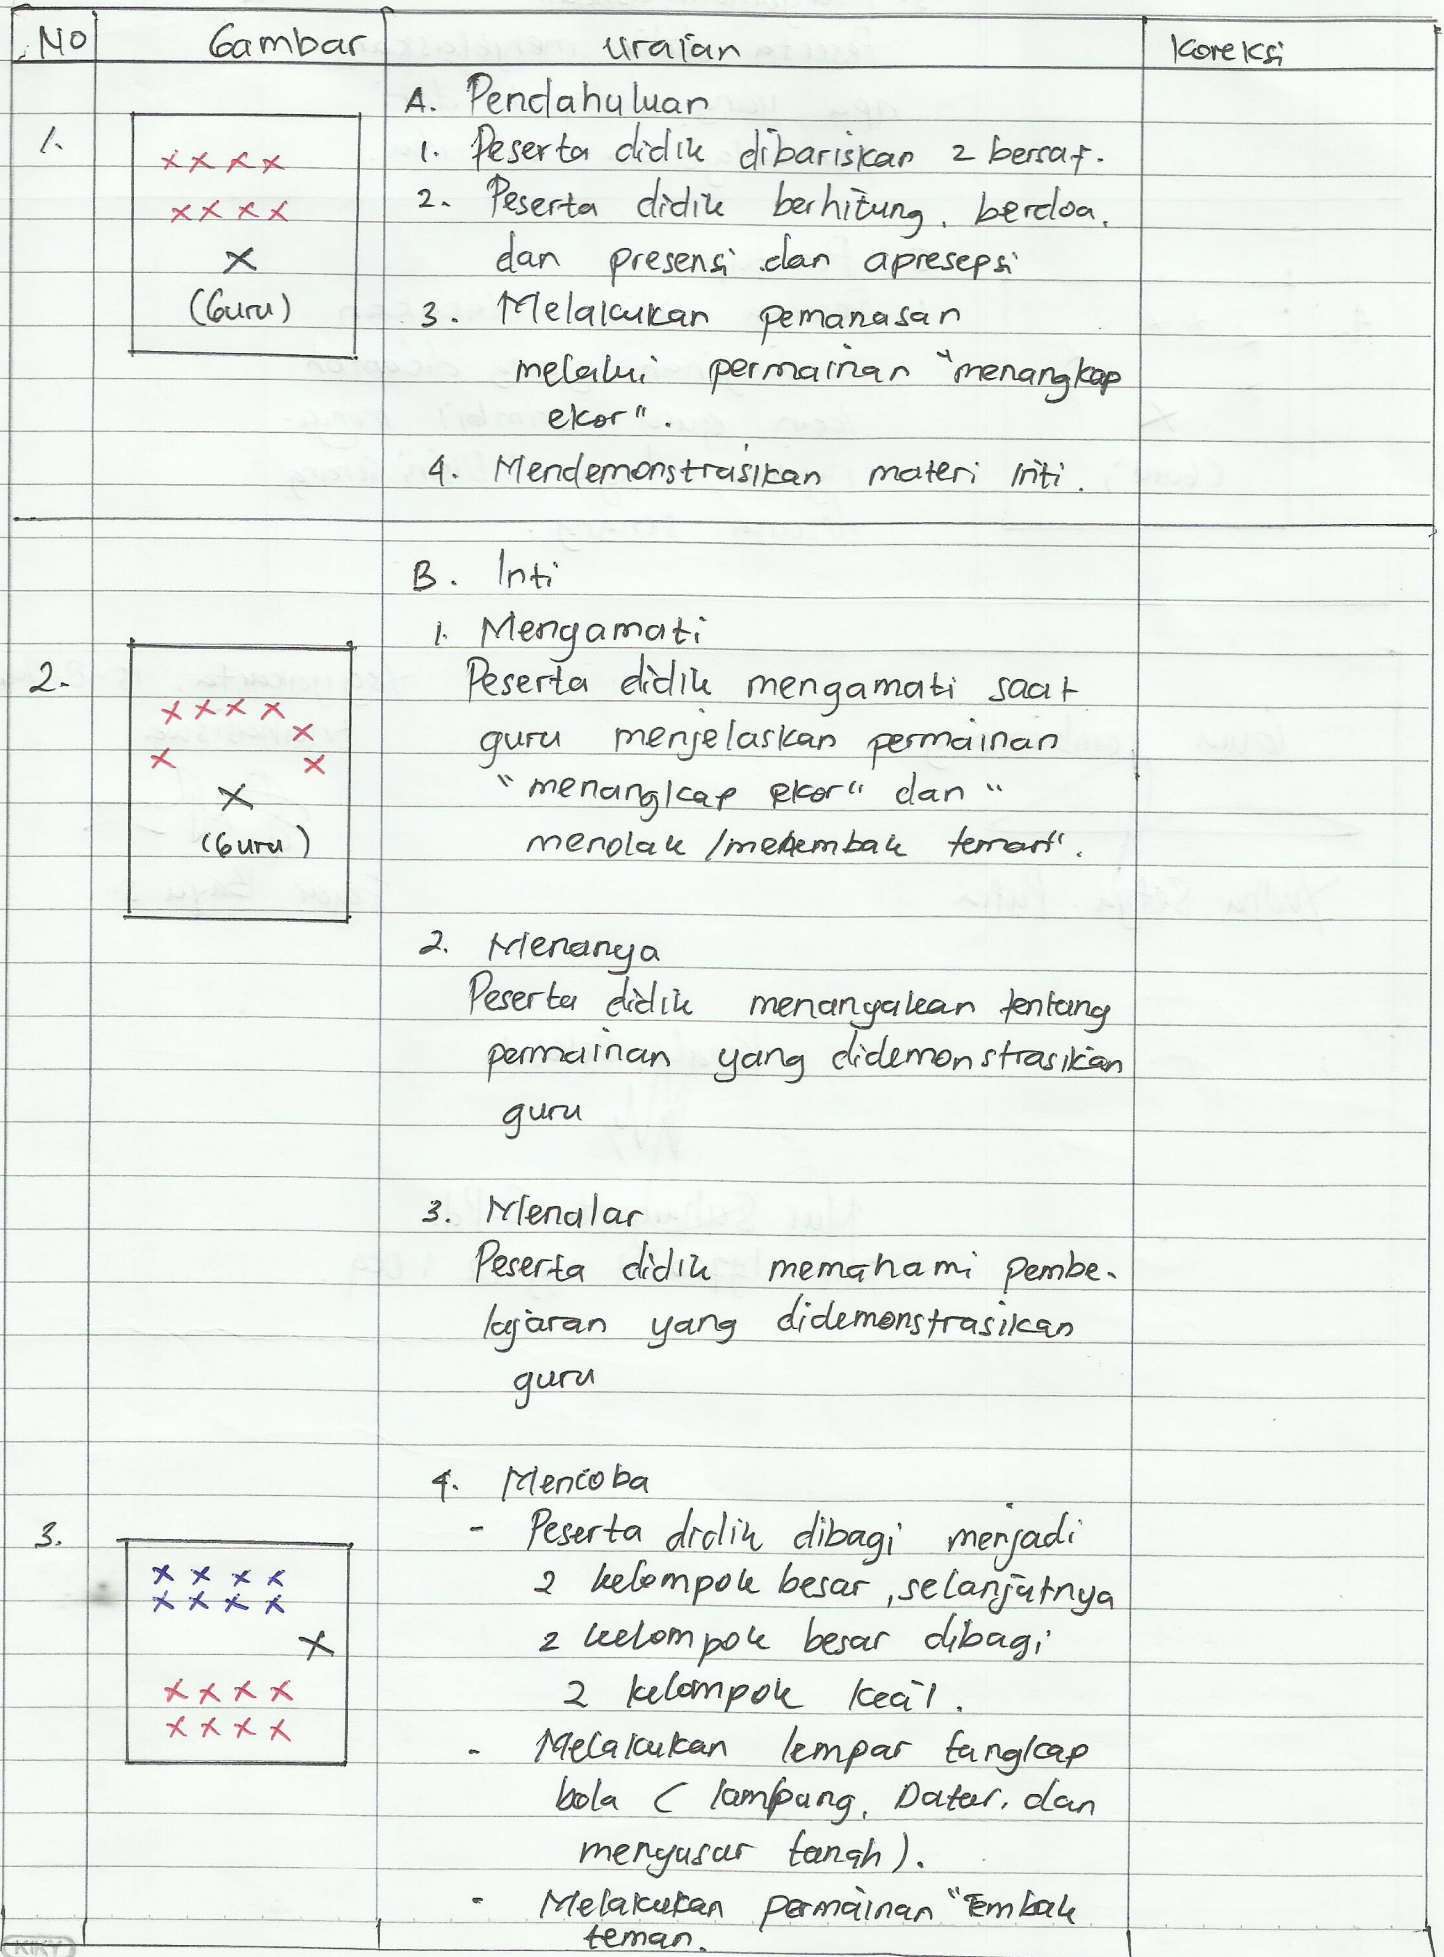 No Gambar Uraian Koreksi
A. Pendahuluan
1.
1. Peserta didik dibariskan 2 bersaf.
2. Peserta didik berhitung, berdoa,
dan presensi dan apresepsi
(Guru)
3. Melakukan pemanasan
melalui permainan "menangkap
ekor".
4. Mendemonstrasikan materi Inti.
B. Inti
1. Mengamati
2.
Peserta didik mengamati saat
guru menjelaskan permainan
"menangkap ekor" dan "
(Guru)
menolak /menembak teman".
2. Menanya
Peserta didik menanyakan tentang
permainan yang didemonstrasikan
guru
3. Menalar
Peserta didik memahami pembe-
lajaran yang didemonstrasikan
guru
4. Mencoba
3.
- Peserta didik dibagi menjadi
2 kelompok besar, selanjutnya
2 kelompok besar dibagi
2 kelompok kecil.
- Melakukan lempar tangkap
bola ( lambung, Datar, dan
menyusur tanah).
- Melakukan permainan "Embak
teman.
KIKY